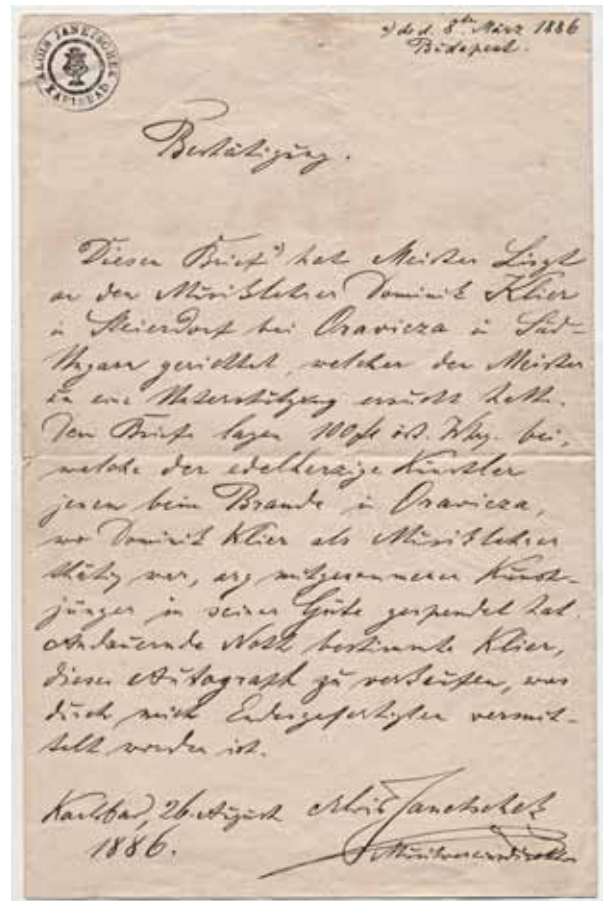 ALOIS JANETSCHEK
KARLSBAD
*) d.d. 8ten März 1886
Budapest.
Bestätigung.
Diesen Brief*) hat Meister Liszt
an den Musiklehrer Dominik Klier
in Steierdorf bei Oravicza in Süd-
Ungarn gerichtet, welcher den Meister
um eine Unterstützung ersucht hatte.
Dem Briefe lagen 100 fl öst. Whg. bei,
welche der edelherzige Künstler
jenem beim Brande in Oravicza,
wo Dominik Klier als Musiklehrer
thätig war, arg mitgenommenen Kunst-
jünger in seiner Güte gespendet hat.
Andauernde Noth bestimmte Klier,
dieses Autograph zu verkaufen, was
durch mich Endesgefertigten vermit-
telt worden ist.
Karlsbad, 26. August Alois Janetschek
1886. Musikvereinsdirektor